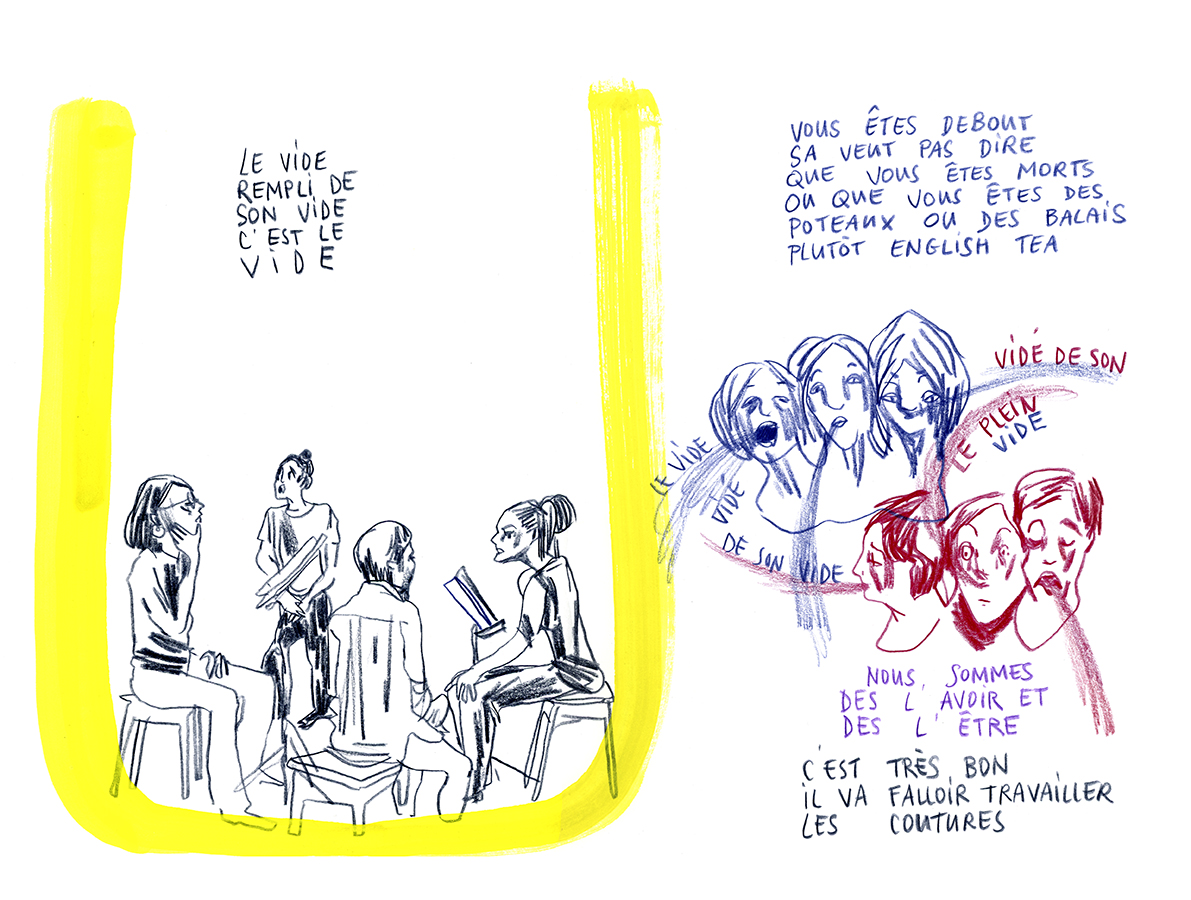 LE VIDE
REMPLI DE
SON VIDE
C'EST LE
VIDE
VOUS ÊTES DEBOUT
SA VEUT PAS DIRE
QUE VOUS ÊTES MORTS
OU QUE VOUS ÊTES DES
POTEAUX OU DES BALAIS
PLUTÒT ENGLISH TEA
VIDÉ DE SON
LE PLEIN
VIDE
LE VIDE
VIDÉ
DE SON VIDE
NOUS SOMMES
DES L'AVOIR ET
DES L'ÊTRE
C'EST TRÈS BON
IL VA FALLOIR TRAVAILLER
LES COUTURES